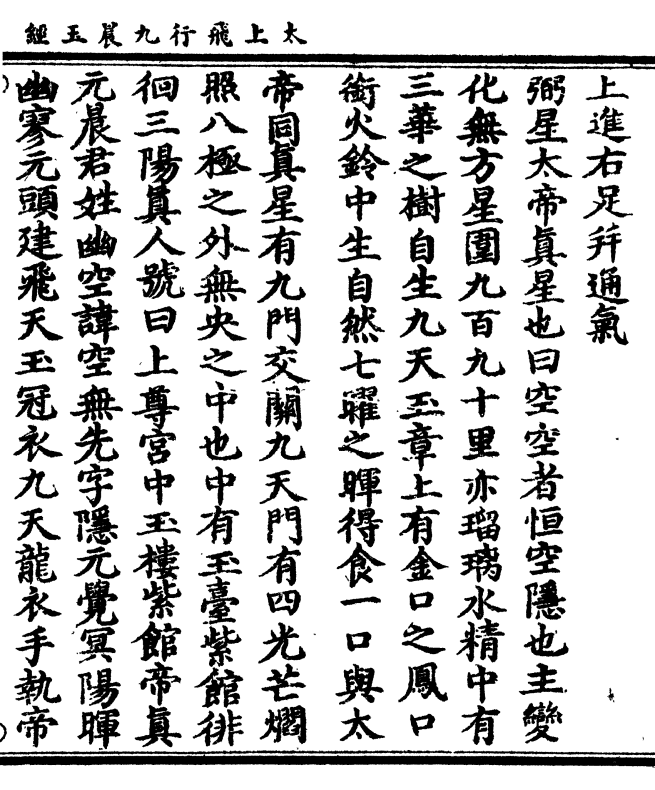 太上飛行九晨玉經
上進右足并通氣
弼星太帝眞星也曰空空者恒空隱也主變
化無方星圍九百九十里亦瑠璃水精中有
三華之樹自生九天玉章上有金口之鳳口
銜火鈴中生自然七曜之暉得食一口與太
帝同眞星有九門交關九天門有四光芒爓
照八極之外無央之中也中有玉臺紫館徘
徊三陽眞人號曰上尊宮中玉樓紫館帝眞
元晨君姓幽空諱空無先字隱元覺冥陽暉
幽寥元頭建飛天玉冠衣九天龍衣手執帝